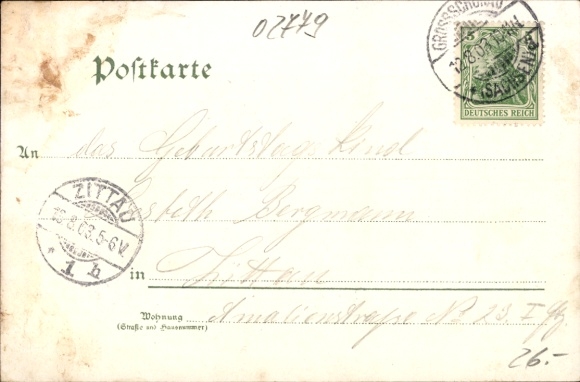 02779
GROSSSCHÖNAU
12.8.03
(SACHSEN)
DEUTSCHES REICH
Postkarte
An das Geburtstags Kind
Lisbeth Bergmann
ZITTAU
8.03.5-6V.
1 b
in Zittau
Wohnung Amalienstraße No 23. I
(Straße und Hausnummer)
26.-